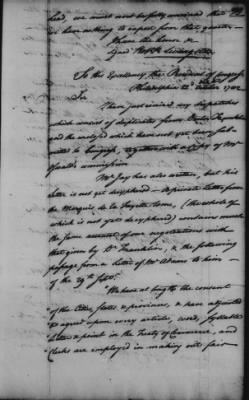 had, we must now be fully convinced that
we have nothing to expect from that quarter
I have the honor &c
Signed Robt R. Livingston
To His Excellency The President of Congress
Philadelphia 12th October 1782
Sir
I have just received my dispatches
which consist of duplicates from Doctor Franklin
and the enclosed which have not yet been sub-
mitted to Congress, together with a Copy of Mr
Oswald's commission
Mr Jay has also written, but his
letter is not yet decyphered — A private letter from
the Marquis de la Fayette to me, (the whole of
which is not yet decyphered) contains much
the same account of our negotiations with
that given by Dr Franklin, & the following
passage from a letter of Mr Adams to him
of the 29th Sept.
"We have at length the consent
of the Cities, States & province, & have adjusted
& agreed upon every article, word, syllable
letter & point in the Treaty of Commerce, and
Clerks are employed in making out fair